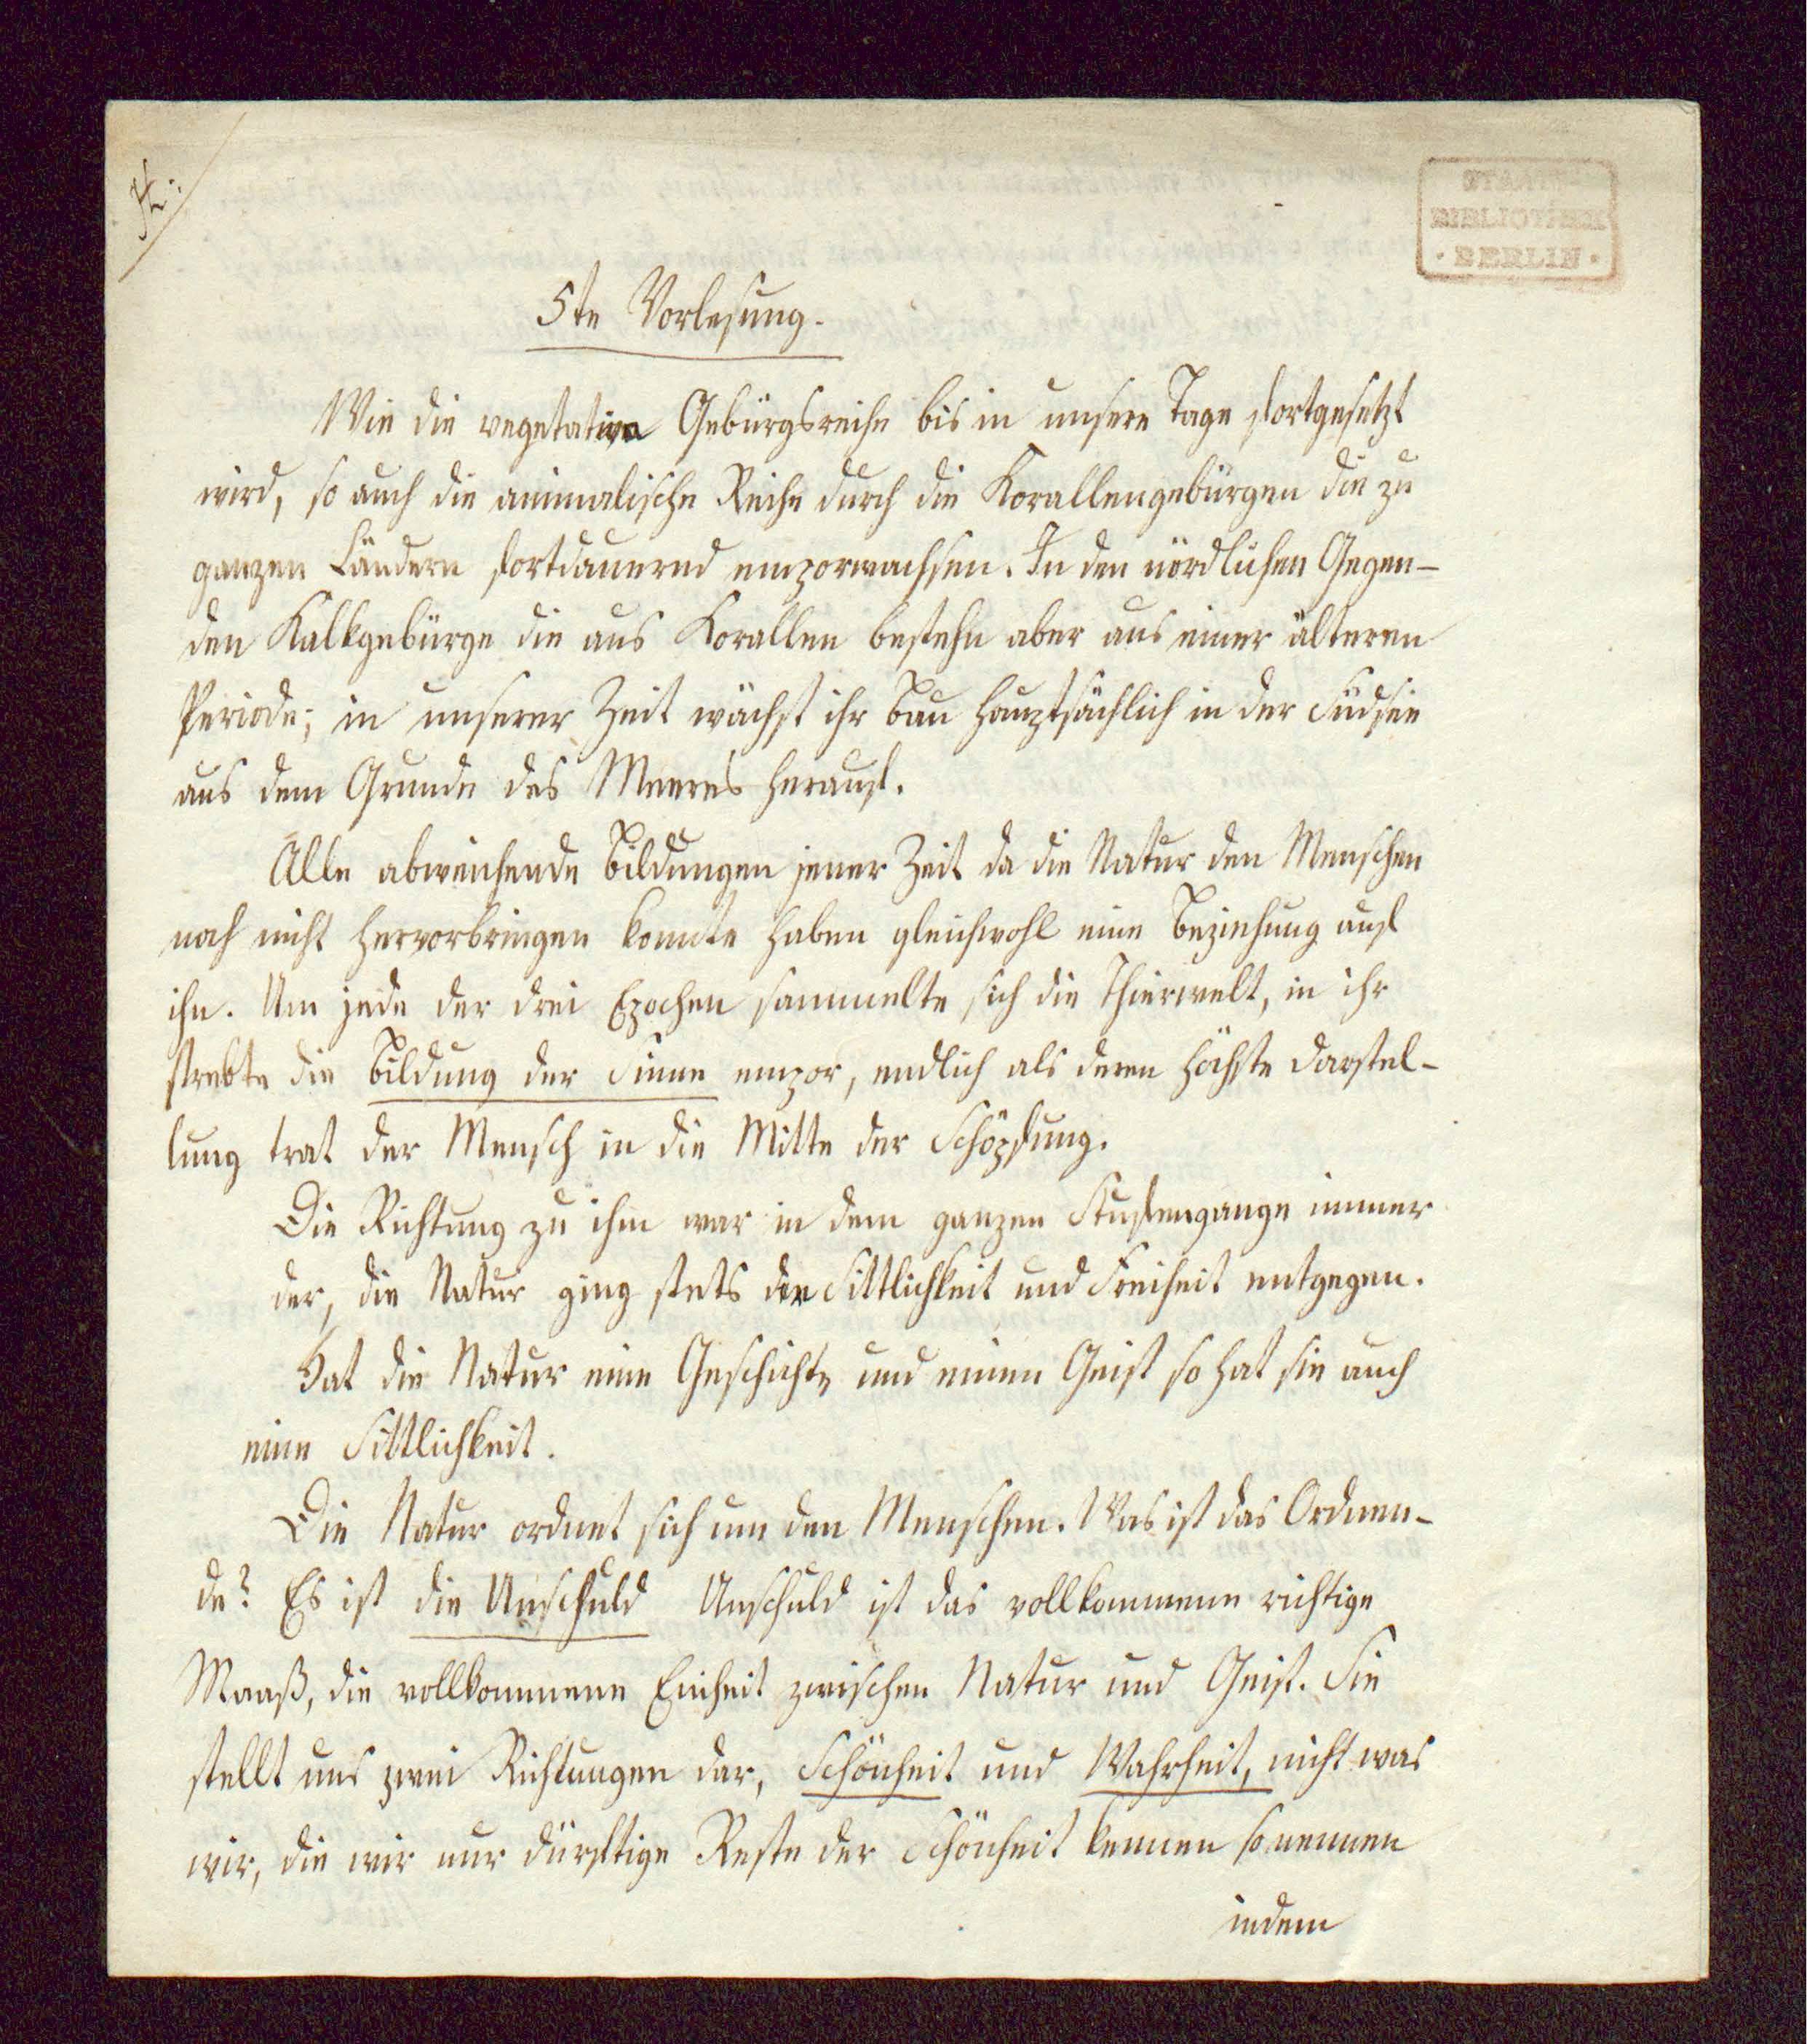 H.
STAATS-
BIBLIOTHEK
· BERLIN ·
5te Vorlesung.
Wie die vegetative Gebürgsreihe bis in unsere Tage fortgesetzt
wird, so auch die animalische Reihe durch die Korallengebürgen die zu
ganzen Ländern fortdauernd emporwachsen. In den nördlichen Gegen-
den Kalkgebürge die aus Korallen bestehn aber aus einer älteren
Periode; in unserer Zeit wächst ihr Bau hauptsächlich in der Südsee
aus dem Grunde des Meeres herauf.
Alle abweichende Bildungen jener Zeit da die Natur den Menschen
noch nicht hervorbringen konnte haben gleichwohl eine Beziehung auf
ihn. Um jede der drei Epochen sammelte sich die Thierwelt, in ihr
strebte die Bildung der Sinne empor, endlich als deren höchste Darstel-
lung trat der Mensch in die Mitte der Schöpfung.
Die Richtung zu ihm war in dem ganzen Stufengange immer
der, die Natur ging stets der Sittlichkeit und Freiheit entgegen.
Hat die Natur eine Geschichte und einen Geist so hat sie auch
eine Sittlichkeit.
Die Natur ordnet sich um den Menschen. Was ist das Ordnen-
de? Es ist die Unschuld Unschuld ist das vollkommene richtige
Maaß, die vollkommene Einheit zwischen Natur und Geist. Sie
stellt uns zwei Richtungen dar, Schönheit und Wahrheit, nicht was
wir, die wir nur dürftige Reste der Schönheit kennen so nennen
indem